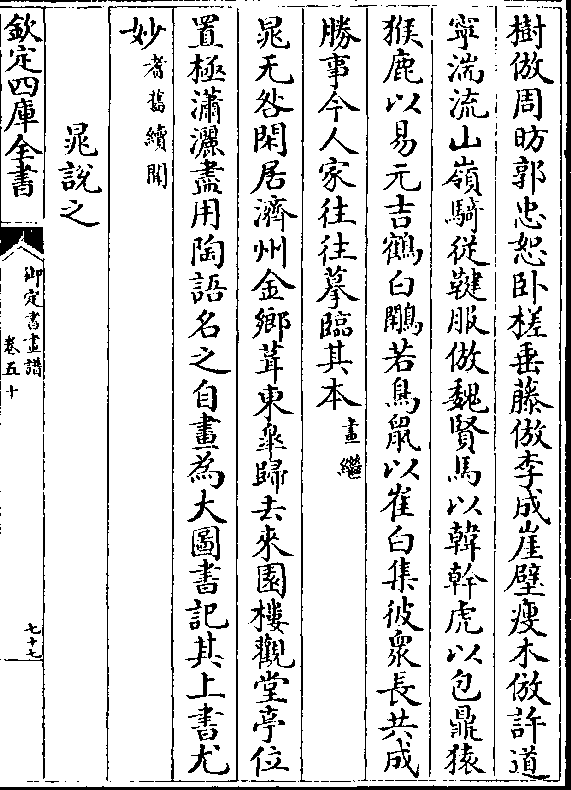 樹倣周昉郭忠恕卧槎垂藤倣李成崖壁瘦木倣許道
寧湍流山嶺騎從鞬服倣魏賢馬以韓幹虎以包鼎猿
猴鹿以易元吉鶴白鷴若鳥鼠以崔白集彼衆長共成
勝事今人家往往摹臨其本畫繼
晁无咎閑居濟州金鄉葺東臯歸去來園樓觀堂亭位
置極瀟灑盡用陶語名之自畫為大圖書記其上書尤
妙耆舊續聞
晁說之
欽定四庫全書
御定書畫譜
卷五十
七十七